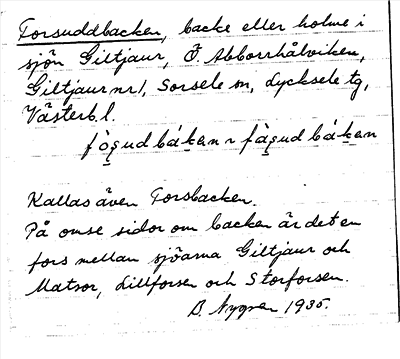 Forsuddbacken, backe eller holme i
sjön Giltjaur, Ö Abborrhålviken,
Giltjaur nr 1, Sorsele sn, Lycksele tg,
Västerb. l.
Kallas även Forsbacken.
På omse sidor om backen är det en
fors mellan sjöarna Giltjaur och
Matsor, Lillforsen och Storforsen.
B. Nygren 1935.